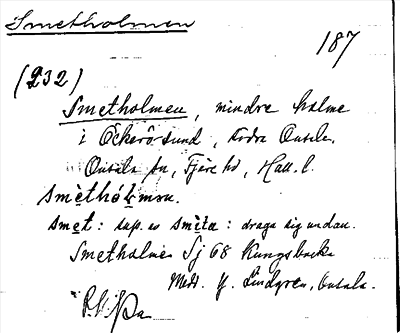 Smetholmen
187
(232)
Smetholmen, mindre holme
i Öckerösund, södra Onsala,
Onsala sn, Fjäre hd, Hall. l.
smèthól̥mən.
smet: sup. av smita: draga sig undan.
Smetholmen Sj 68 Kungsbacka
Medd. Y. Lindgren, Onsala.